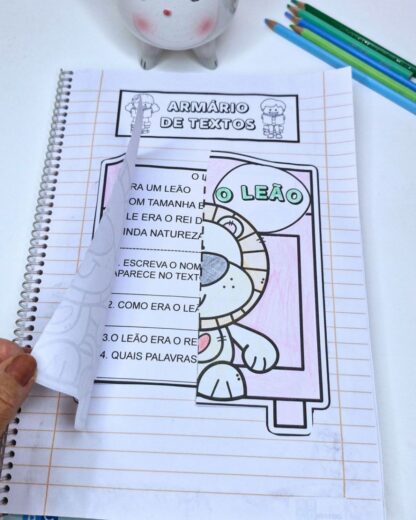 ARMÁRIO
DE TEXTOS
O LEÃO
O
ERA UM LEÃO
COM TAMANHA
ELE ERA O REI D
LINDA NATUREZA
1. ESCREVA O NOM
APARECE NO TEXT
2. COMO ERA O LEÃ
3.O LEÃO ERA O RE
4. QUAIS PALAVRAS